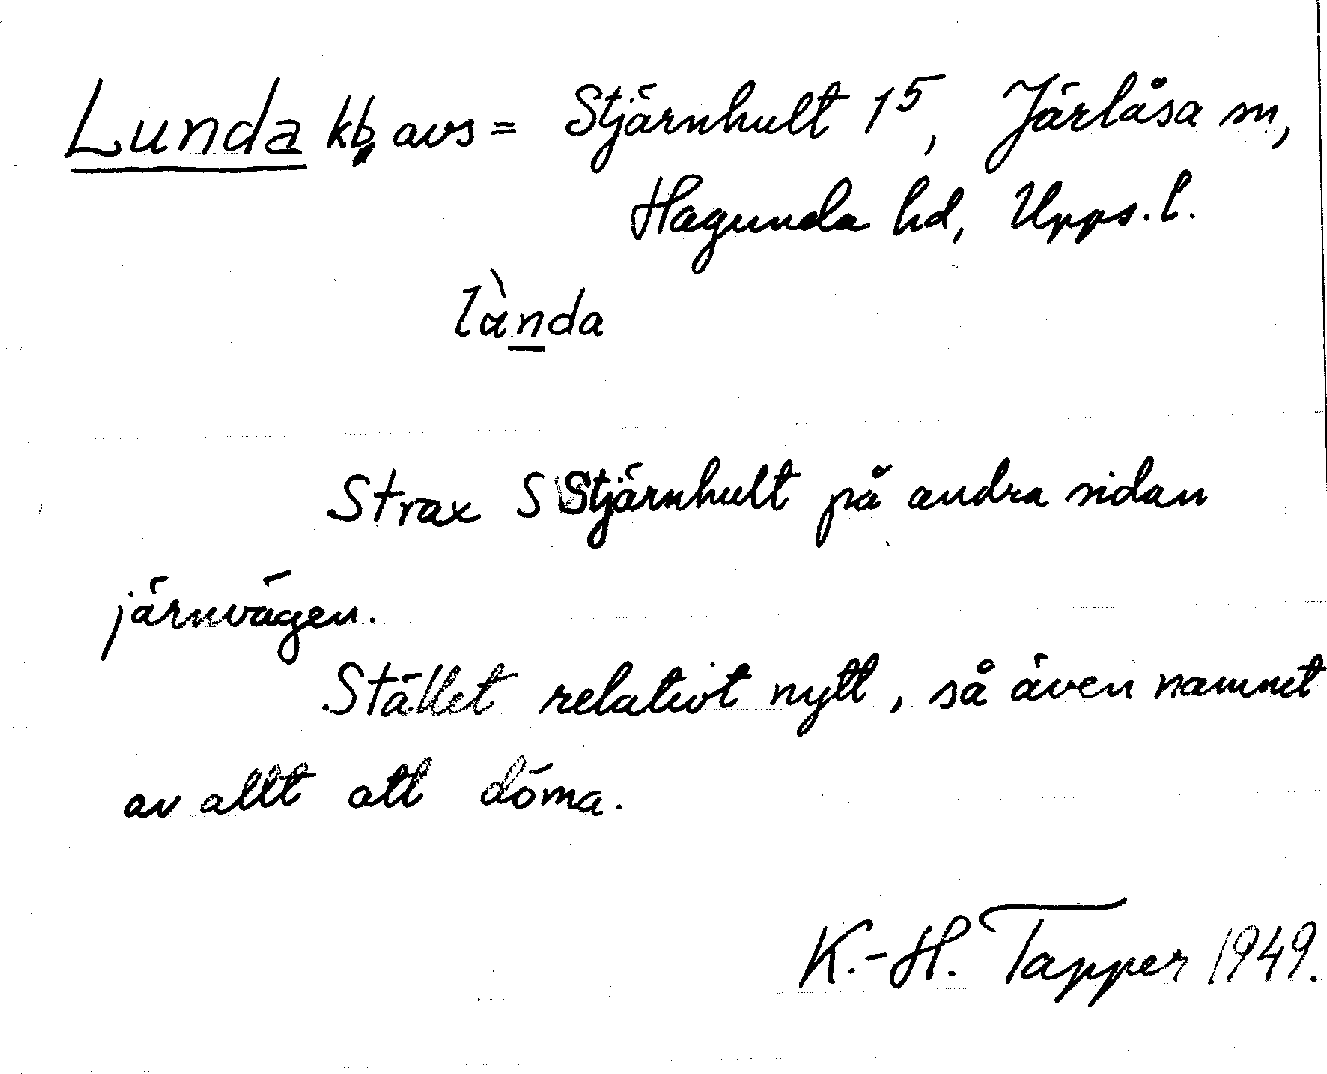 Lunda kb, avs = Stjärnhult 1⁵, Järlåsa sn,
Hagunda hd, Upps. l.
lànda
Strax S Stjärnhult på andra sidan
järnvägen.
Stället relativt nytt, så även namnet
av allt att döma.
K.-H. Tapper 1949.